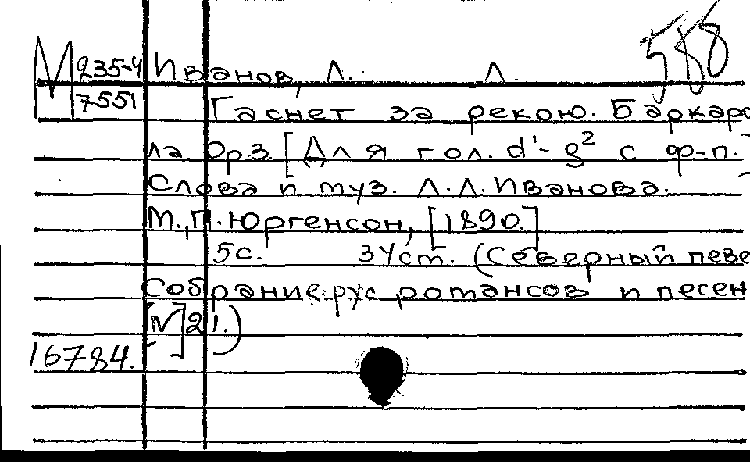 588
М 235-4 Иванов, Л. Л
7551 Гаснет за рекою. Баркаро
ла Ор.3. [Для гол. d'-g² с ф-п.]
Слова и муз. Л.Л.Иванова.
М.,П.Юргенсон, [1890.]
5с. 3Уст. (Северный певе
Собрание рус романсов и песен
N] 21.)
16784.